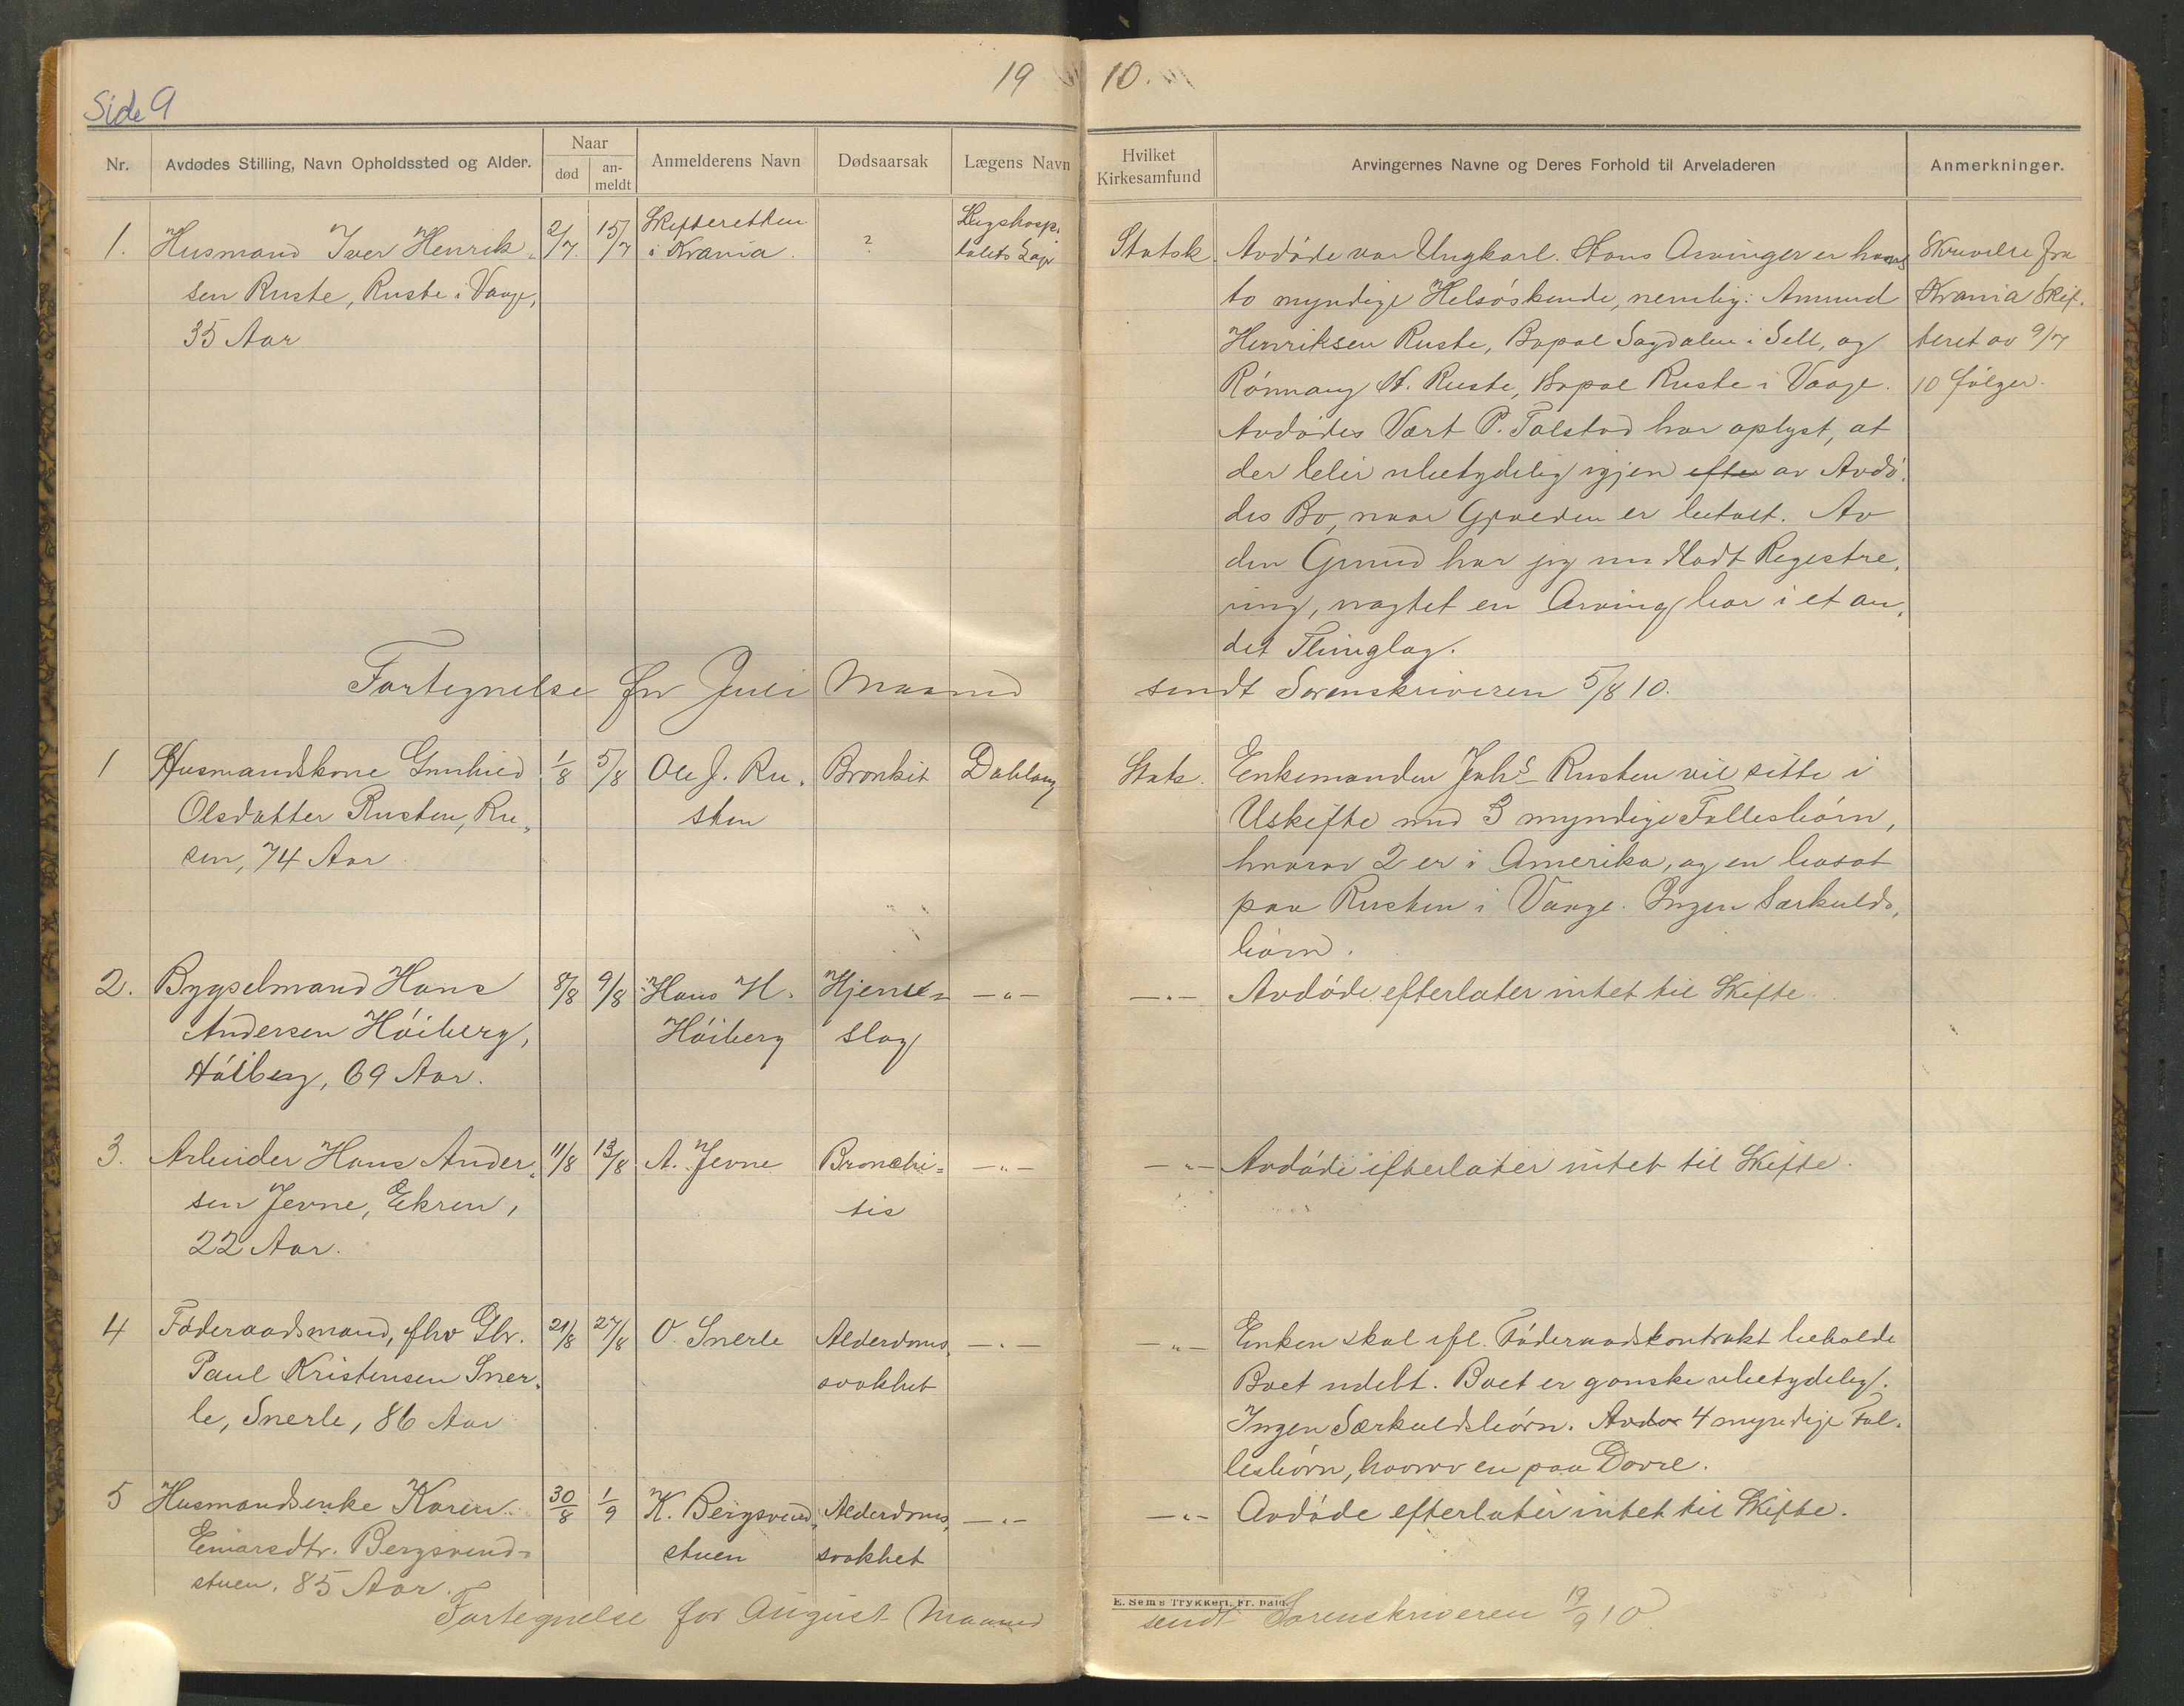 19 10.
Side 9
Nr. Avdødes Stilling, Navn Opholdssted og Alder. Naar død an-meldt Anmelderens Navn Dødsaarsak Lægens Navn Hvilket Kirkesamfund Arvingernes Navne og Deres Forhold til Arveladeren Anmerkninger.
1. Husmand Iver Henrik-
sen Ruste, Ruste i Vaage,
35 Aar
2/7 15/7
Skifteretten
i Krania.
?
Statsk.
Avdøde var Ungkarl. Hans Arvinger er hans
to myndige Helsøskende, nemlig: Amund
Henriksen Ruste, Bopæl Sagdalen i Sell, og
Rønnaug H. Ruste, Bopæl Ruste i Vaage.
Avdødes Vært P. Tolstad har oplyst, at
der blir ubetydelig igjen efter av Avdø-
des Bo, naar Gjælden er betalt. Av
den Grund har jeg undladt Registre-
ring, uagtet en Arving bor i et an-
det Thinglag.
Skrivelse fra
Krania Skif-
teret av 9/7
10 følger.
Fortegnelse for Juli Maaned sendt Sorenskriveren 5/8 10.
1 Husmandskone Gunhild
Olsdatter Rusten, Ru-
sen, 74 Aar
1/8 5/8
Ole J. Ru-
sten
Bronkit
Dahlang
Stats.
Enkemanden Johs Rusten vil sitte i
Uskifte med 3 myndige Fællesbørn,
hvorav 2 er i Amerika, og en bosat
paa Rusten i Vaage. Ingen Særkulds-
børn.
2. Bygselmand Hans
Andersen Høiberg,
Høiberg, 69 Aar.
8/8 9/8
Hans H.
Høiberg
Hjerte-
slag
—„—
—„—
Avdøde efterlater intet til Skifte.
3. Arbeider Hans Ander-
sen Jevne, Ekren,
22 Aar.
11/8 13/8
A. Jevne
Bronchi-
tis
—„—
—„—
Avdøde efterlater intet til Skifte.
4 Føderaadsmand, fhv Gbr.
Paul Kristensen Sner-
le, Snerle, 86 Aar
21/8 27/8
O. Snerle
Alderdoms-
svakhet
—„—
—„—
Enken skal ifl. Føderaadskontrakt beholde
Boet udelt. Boet er ganske ubetydelig.
Ingen Særkuldsbørn. 4 myndige Fæl-
lesbørn, hvorav en paa Dovre.
5 Husmandsenke Karen
Einarsdtr. Bergsvend-
stuen. 85 Aar.
30/8 1/9
K. Bergsvend-
stuen
Alderdoms-
svakhet
—„—
—„—
Avdøde efterlater intet til Skifte.
E. Sems Trykkeri, Fr. hald.
Fortegnelse for August Maaned sendt Sorenskriveren 19/9 10